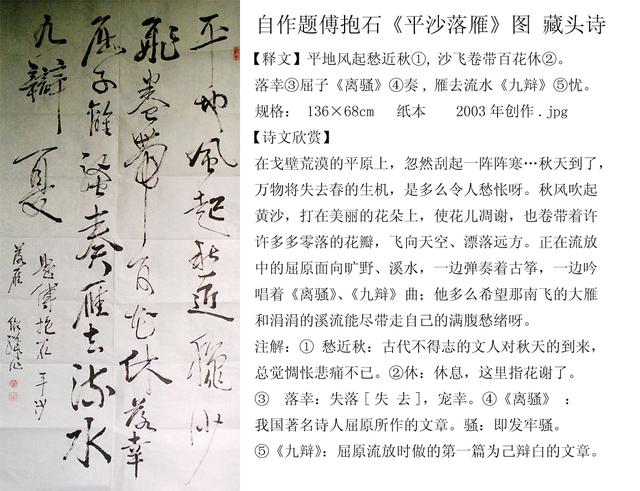 平地風起愁近龝沙
飛卷帶百花休落幸
屈子離騷奏雁去流水
九辯憂
題傅抱石平沙
落雁
自作题傅抱石《平沙落雁》图 藏头诗
【释文】平地风起愁近秋①, 沙飞卷带百花休②。
落幸③屈子《离骚》④奏, 雁去流水《九辩》⑤忧。
规格: 136×68cm 纸本 2003年创作.jpg
【诗文欣赏】
在戈壁荒漠的平原上，忽然刮起一阵阵寒…秋天到了，
万物将失去春的生机，是多么令人愁怅呀。秋风吹起
黄沙，打在美丽的花朵上，使花儿凋谢，也卷带着许
许多多零落的花瓣，飞向天空、漂落远方。正在流放
中的屈原面向旷野、溪水，一边弹奏着古筝，一边吟
唱着《离骚》、《九辩》曲；他多么希望那南飞的大雁
和涓涓的溪流能尽带走自己的满腹愁绪呀。
注解：① 愁近秋：古代不得志的文人对秋天的到来，
总觉惆怅悲痛不已。②休：休息，这里指花谢了。
③ 落幸：失落[失 去]，宠幸。④《离骚》：
我国著名诗人屈原所作的文章。骚：即发牢骚。
⑤《九辩》：屈原流放时做的第一篇为己辩白的文章。